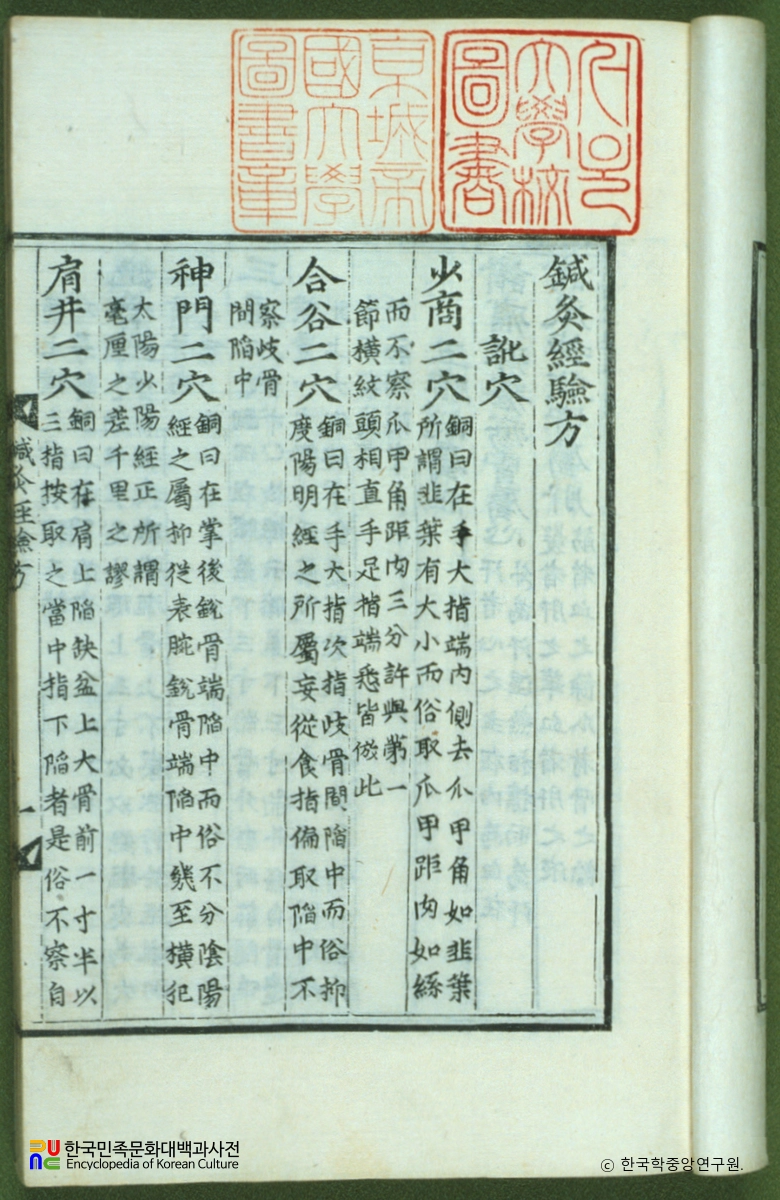 京城帝
國大學
圖書章
大學校
圖書
鍼灸經驗方
訛穴
少商二穴
銅曰在手大指端內側去爪甲角如韭葉
所謂韭葉有大小而俗取爪甲距肉如絲
而不察爪甲角距肉三分許與第一
節橫紋頭相直手足指端悉皆倣此
合谷二穴
銅曰在手大指次指歧骨間陷中而俗抑
度陽明經之所屬妄從食指偏取陷中不
察歧骨
間陷中
神門二穴
銅曰在掌後銳骨端陷中而俗不分陰陽
經之屬抑從表腕銳骨端陷中幾至橫犯
太陽少陽經正所謂
毫厘之差千里之謬
肩井二穴
銅曰在肩上陷缺盆上大骨前一寸半以
三指按取之當中指下陷者是俗不察自
鍼灸經驗方
一
한국민족문화대백과사전
Encyclopedia of Korean Culture
© 한국학중앙연구원.